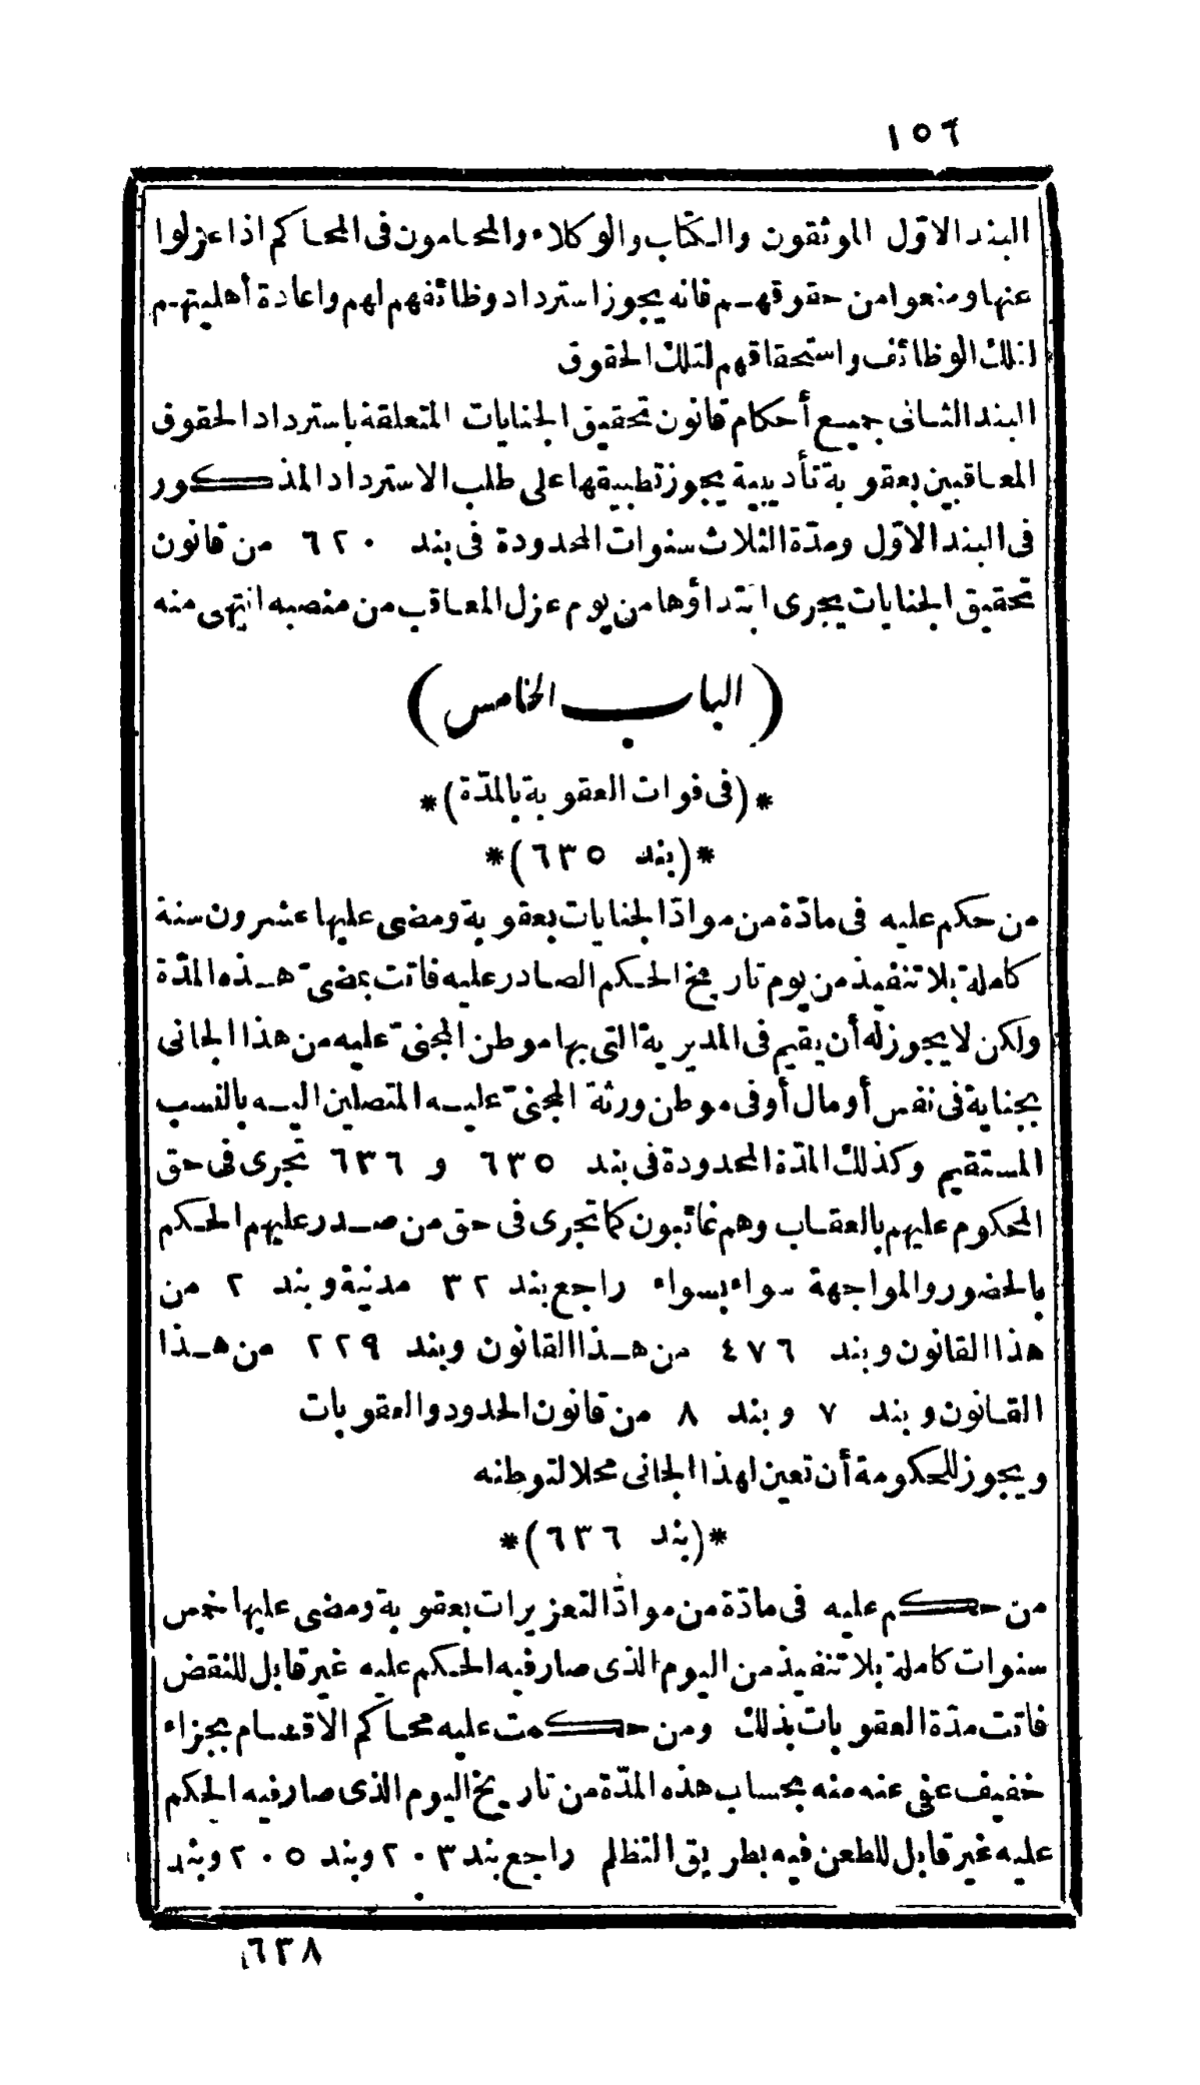 ١٥٦
البند الاوّل الموثقون والكتاب والوكلاء والمحامون فى المحاكم اذا عزلوا
عنها ومنعوا من حقوقهم فانه يجوز استرداد وظائفهم لهم واعادة أهليتهم
لتلك الوظائف واستحقاقهم لتلك الحقوق
البند الثانى جميع أحكام قانون تحقيق الجنايات المتعلقة باسترداد الحقوق
المعاقبين بعقوبة تأديبية يجوز تطبيقها على طلب الاسترداد المذكور
فى البند الاوّل ومدّة الثلاث سنوات المحدودة فى بند ٦٢٠ من قانون
تحقيق الجنايات يجرى ابتداؤها من يوم عزل المعاقب من منصبه انتهى منه
(الباب الخامس)
*(فى فوات العقوبة بالمدّة)*
*(بند ٦٣٥)*
من حكم عليه فى مادّة من موادّ الجنايات بعقوبة ومضى عليها عشرون سنة
كاملة بلا تنفيذ من يوم تاريخ الحكم الصادر عليه فاتت بمضىّ هذه المدّة
ولكن لا يجوز له أن يقيم فى المديرية التى بها موطن المجنىّ عليه من هذا الجانى
بجناية فى نفس أو مال أو فى موطن ورثة المجنىّ عليه المتصلين اليه بالنسب
المستقيم وكذلك المدّة المحدودة فى بند ٦٣٥ و ٦٣٦ تجرى فى حق
المحكوم عليهم بالعقاب وهم غائبون كما تجرى فى حق من صدر عليهم الحكم
بالحضور والمواجهة سواء بسواء راجع بند ٣٢ مدنية وبند ٢ من
هذا القانون وبند ٤٧٦ من هذا القانون وبند ٢٢٩ من هذا
القانون وبند ٧ وبند ٨ من قانون الحدود والعقوبات
ويجوز للحكومة أن تعين لهذا الجانى محلا لتوطنه
*(بند ٦٣٦)*
من حكم عليه فى مادّة من موادّ التعزيرات بعقوبة ومضى عليها خمس
سنوات كاملة بلا تنفيذ من اليوم الذى صار فيه الحكم عليه غير قابل للنقض
فاتت مدّة العقوبات بذلك ومن حكمت عليه محاكم الاقسام بجزاء
خفيف عفى عنه منه بحساب هذه المدّة من تاريخ اليوم الذى صار فيه الحكم
عليه غير قابل للطعن فيه بطريق التظلم راجع بند ٢٠٣ وبند ٢٠٥ وبند
٦٣٨